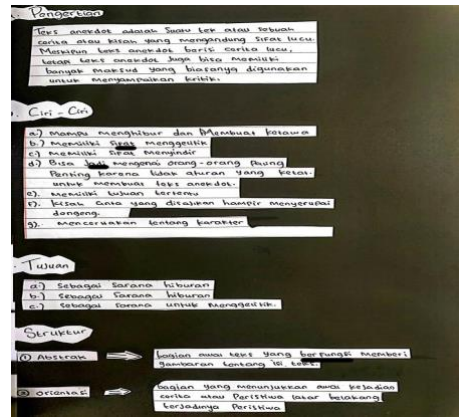 . Pengertian
Teks anekdot adalah Suatu tek atau sebuah
carita atau kisah yang mengandung Sifat lucu.
Meskipun teks anekdot berisi carita lucu,
tetap teks anekdot Juga bisa memiliki
banyak maksud yang biasanya digunakan
untuk menyampaikan kritik.
. Ciri - Ciri
a.) Mampu menghibur dan Membuat ketawa
b.) Memiliki Sifat menggelitik
c.) Memiliki Sifat Mengindir
d.) Bisa Jadi mengenai orang-orang Paung
Penting karena tidak aturan yang ketat.
untuk membuat teks anekdot.
e). Memiliki tujuan tertentu
F). kisah Cinta yang disajikan hampir menyerupai
dongeng.
g). Menceruakan tentang karakter
. Tujuan
a.) Sebagai Sarana hiburan
b.) Sebagai Sarana hiburan
c.) Sebagai Sarana untuk Menggelitik.
Struktur
① Abstrak ⇒ bagian awal teks yang berfungsi Memberi
gambaran tentang isi teks.
② orientasi ⇒ bagian yang menunjukkan awal kejadian
cerita atau Peristiwa latar belakang
terjadinya Peristiwa